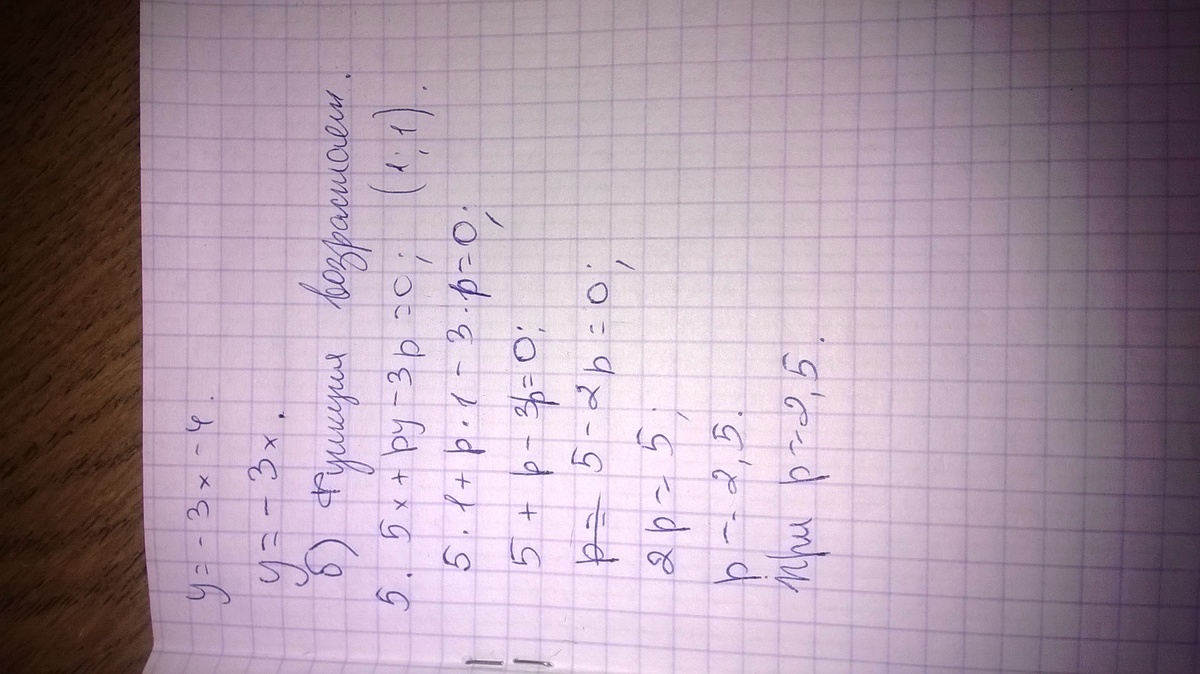 y = -3x - 4.
y = -3x.
б) Функция возрастает.
5. 5x + py - 3p = 0; (1; 1).
5·1 + p·1 - 3·p = 0;
5 + p - 3p = 0;
p= 5 - 2p = 0;
2p = 5;
p = 2,5.
При p = 2,5.